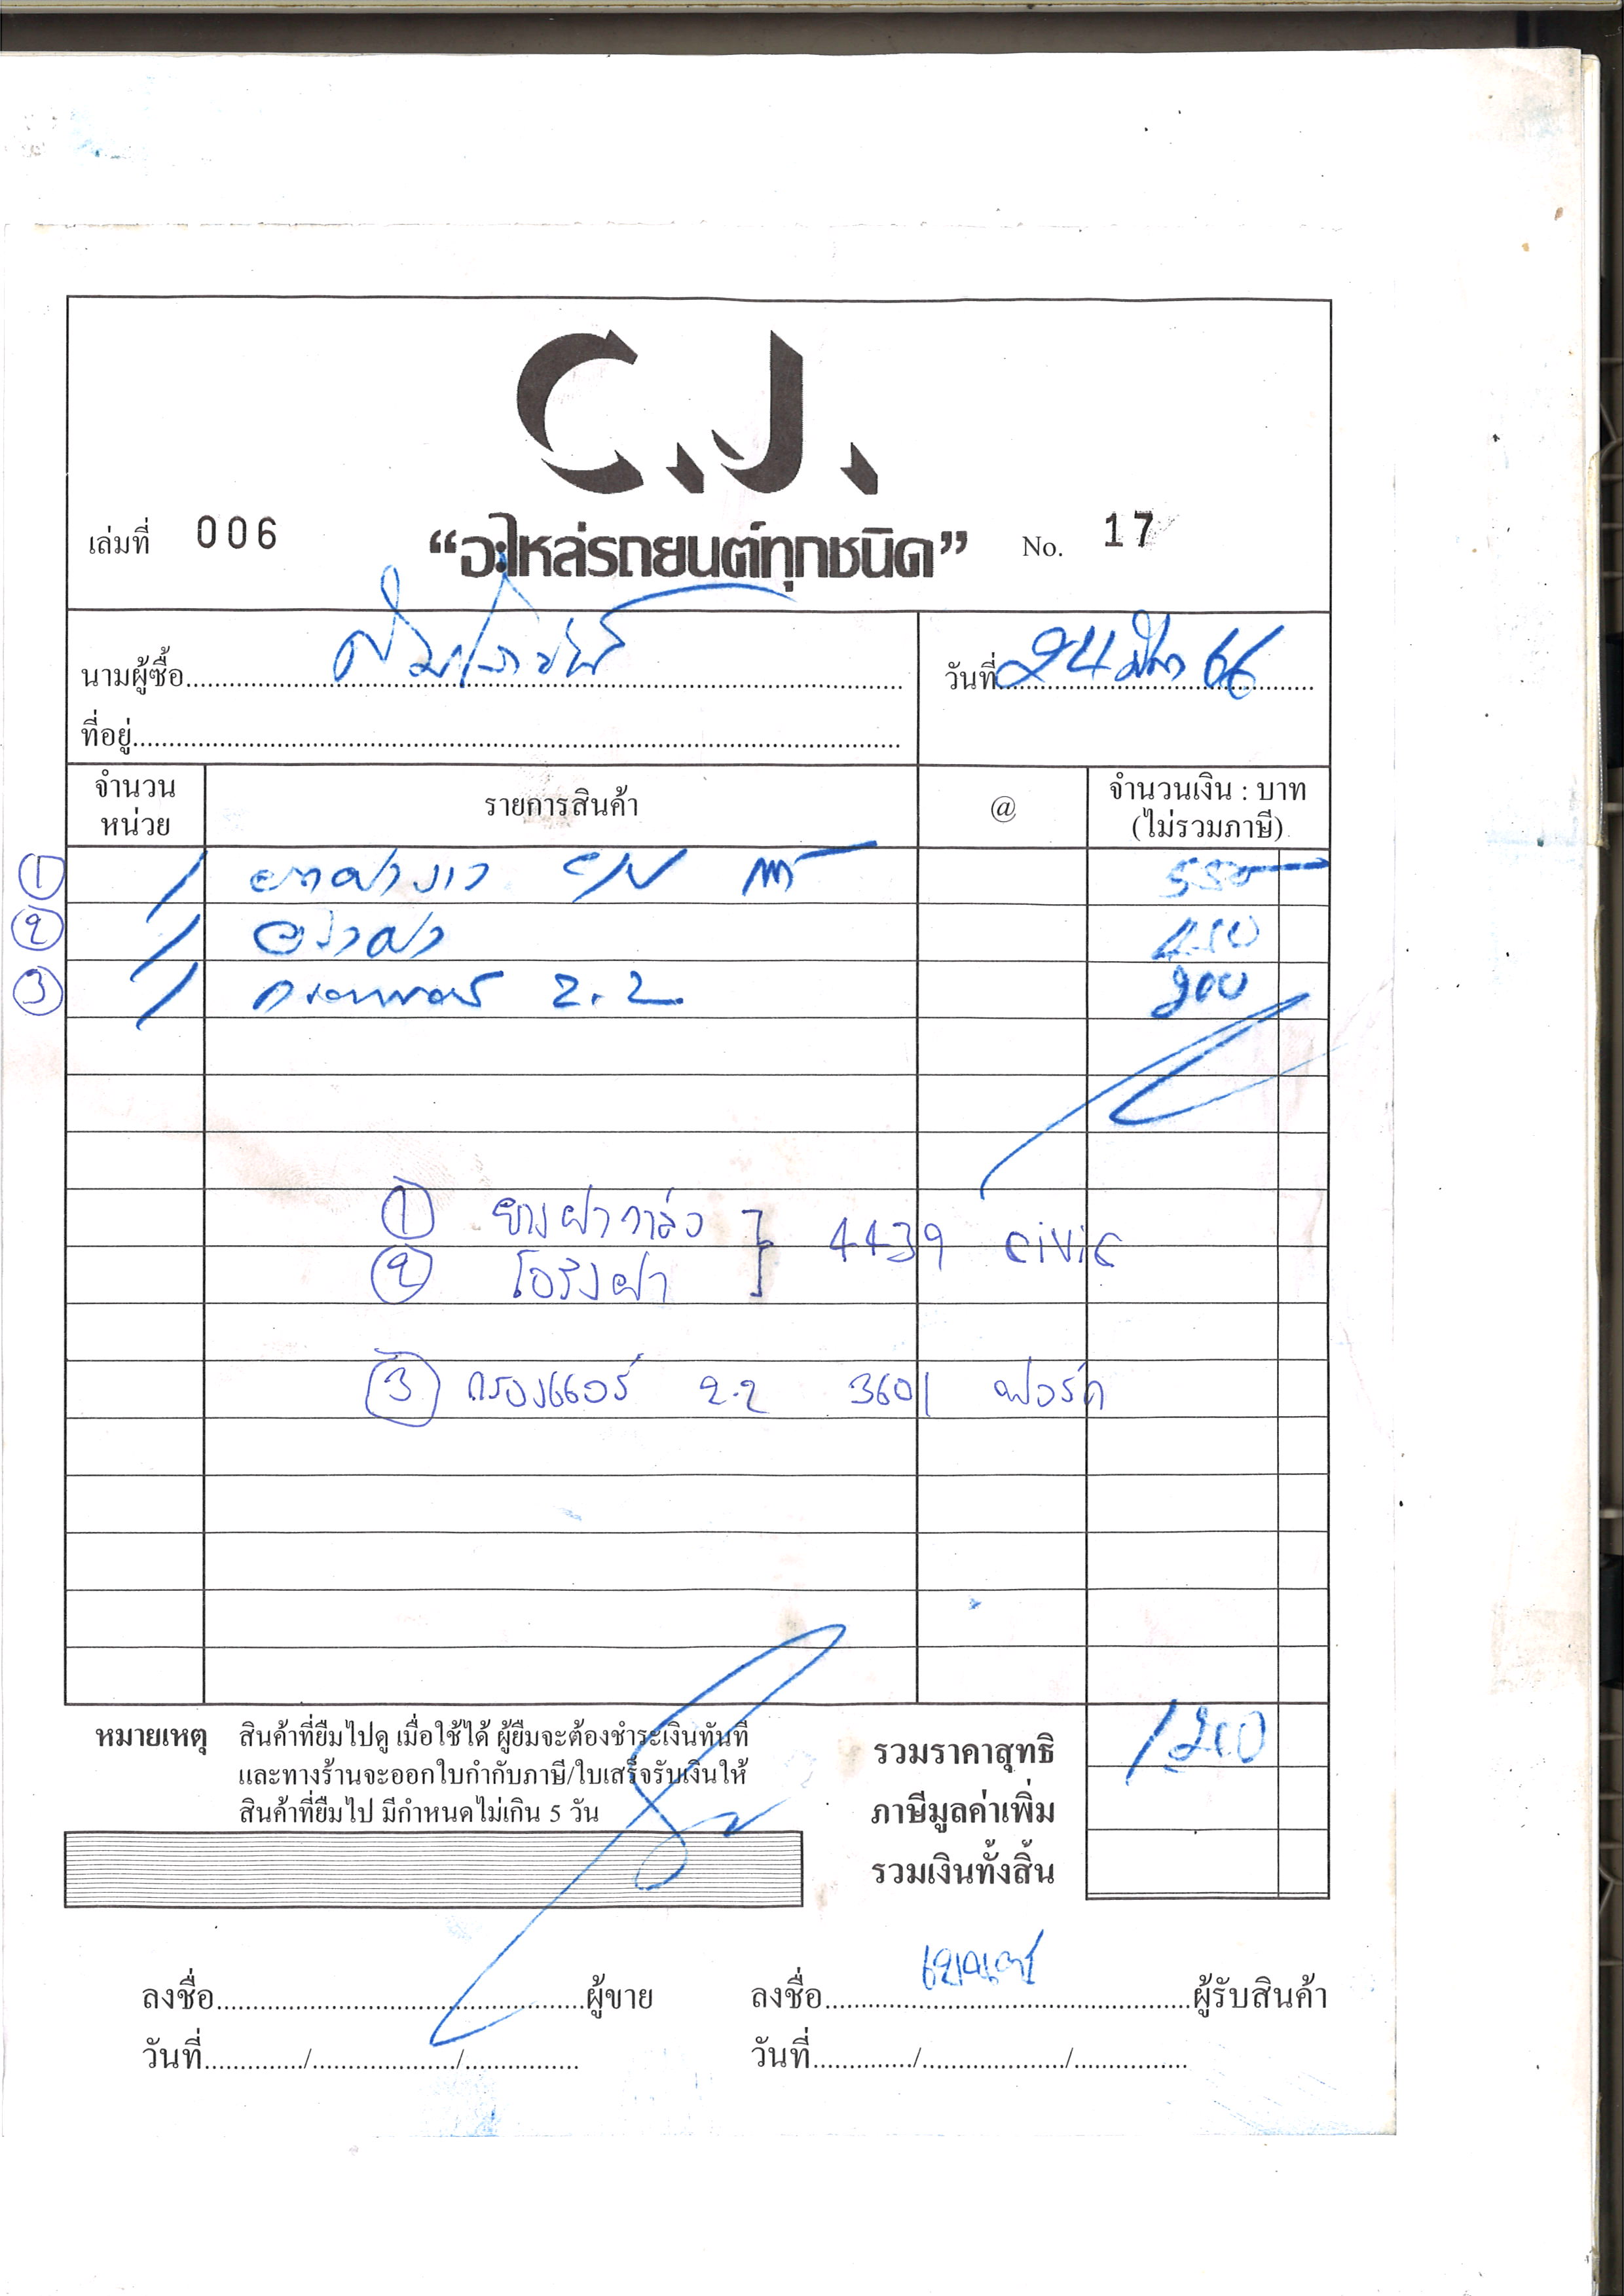 C.J.
เล่มที่ 006 “อะไหล่รถยนต์ทุกชนิด” No. 17
นามผู้ซื้อ
วันที่ 24 มีนา 66
ที่อยู่
จำนวน หน่วย รายการสินค้า @ จำนวนเงิน : บาท (ไม่รวมภาษี)
① / 550
② / 450
③ / 2.2 200
① ยางฝาวาล์ว } 4439 civic
② โอริงฝา
③ กรองแอร์ 2.2 3601 ฟอร์ด
หมายเหตุ สินค้าที่ยืมไปดู เมื่อใช้ได้ ผู้ยืมจะต้องชำระเงินทันที
และทางร้านจะออกใบกำกับภาษี/ใบเสร็จรับเงินให้
สินค้าที่ยืมไป มีกำหนดไม่เกิน 5 วัน
รวมราคาสุทธิ 1200
ภาษีมูลค่าเพิ่ม
รวมเงินทั้งสิ้น
ลงชื่อ ผู้ขาย ลงชื่อ ผู้รับสินค้า
วันที่ / / วันที่ / /